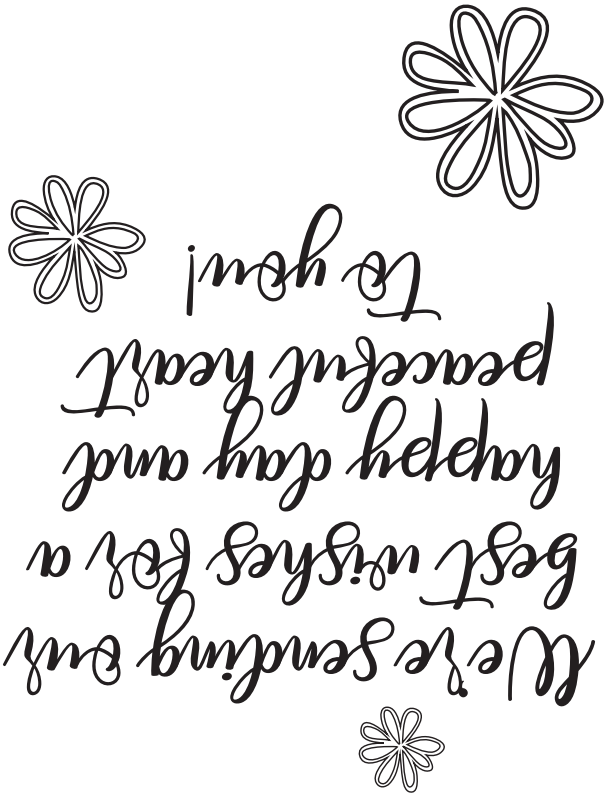 We're sending our
best wishes for a
happy day and
peaceful heart
to you!